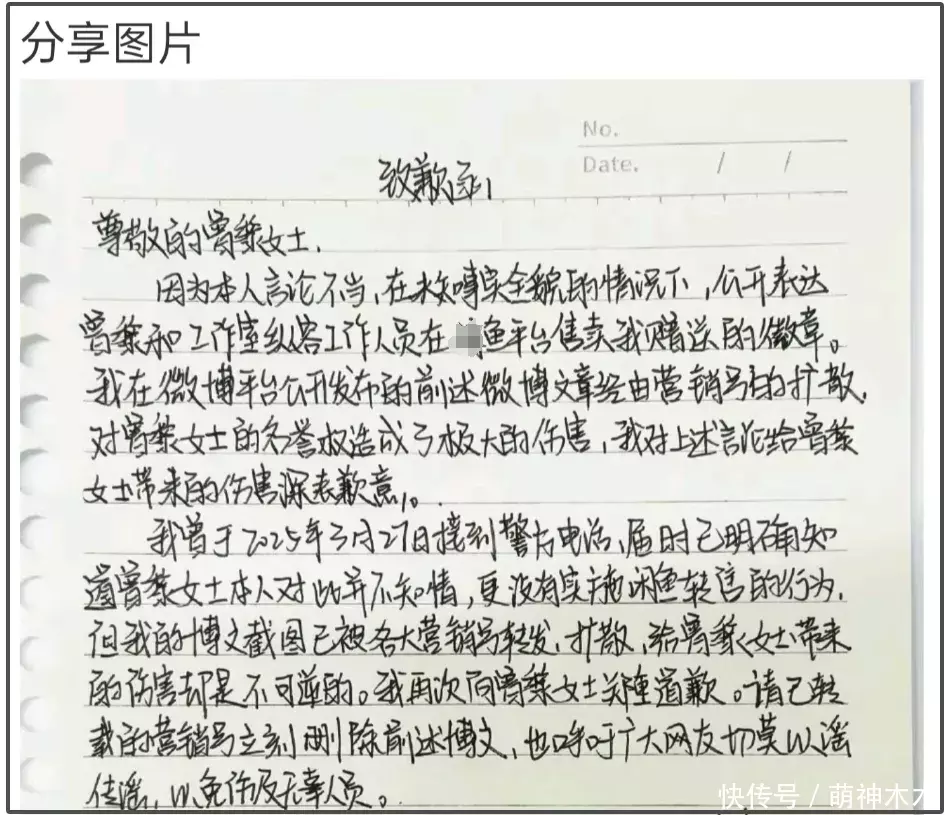 分享图片
No.
Date. / /
致歉函
尊敬的曾黎女士.
因为本人言论不当,在未知事实全貌的情况下,公开表达
曾黎和工作室纵容工作人员在 鱼平台售卖我赠送的徽章。
我在微博平台公开发布的前述微博文章经由营销号的扩散,
对曾黎女士的名誉权造成了极大的伤害,我对上述言论给曾黎
女士带来的伤害深表歉意。
我曾于2025年3月27日接到警方电话,届时已明确知
道曾黎女士本人对此并不知情,更没有实施闲鱼转售的行为,
但我的博文截图已被各大营销号转发、扩散,给曾黎女士带来
的伤害却是不可逆的。我再次向曾黎女士郑重道歉。请已转
载的营销号立刻删除前述博文,也呼吁广大网友切莫以谣
传谣,以免伤及无辜人员。
快传号 / 萌神木木